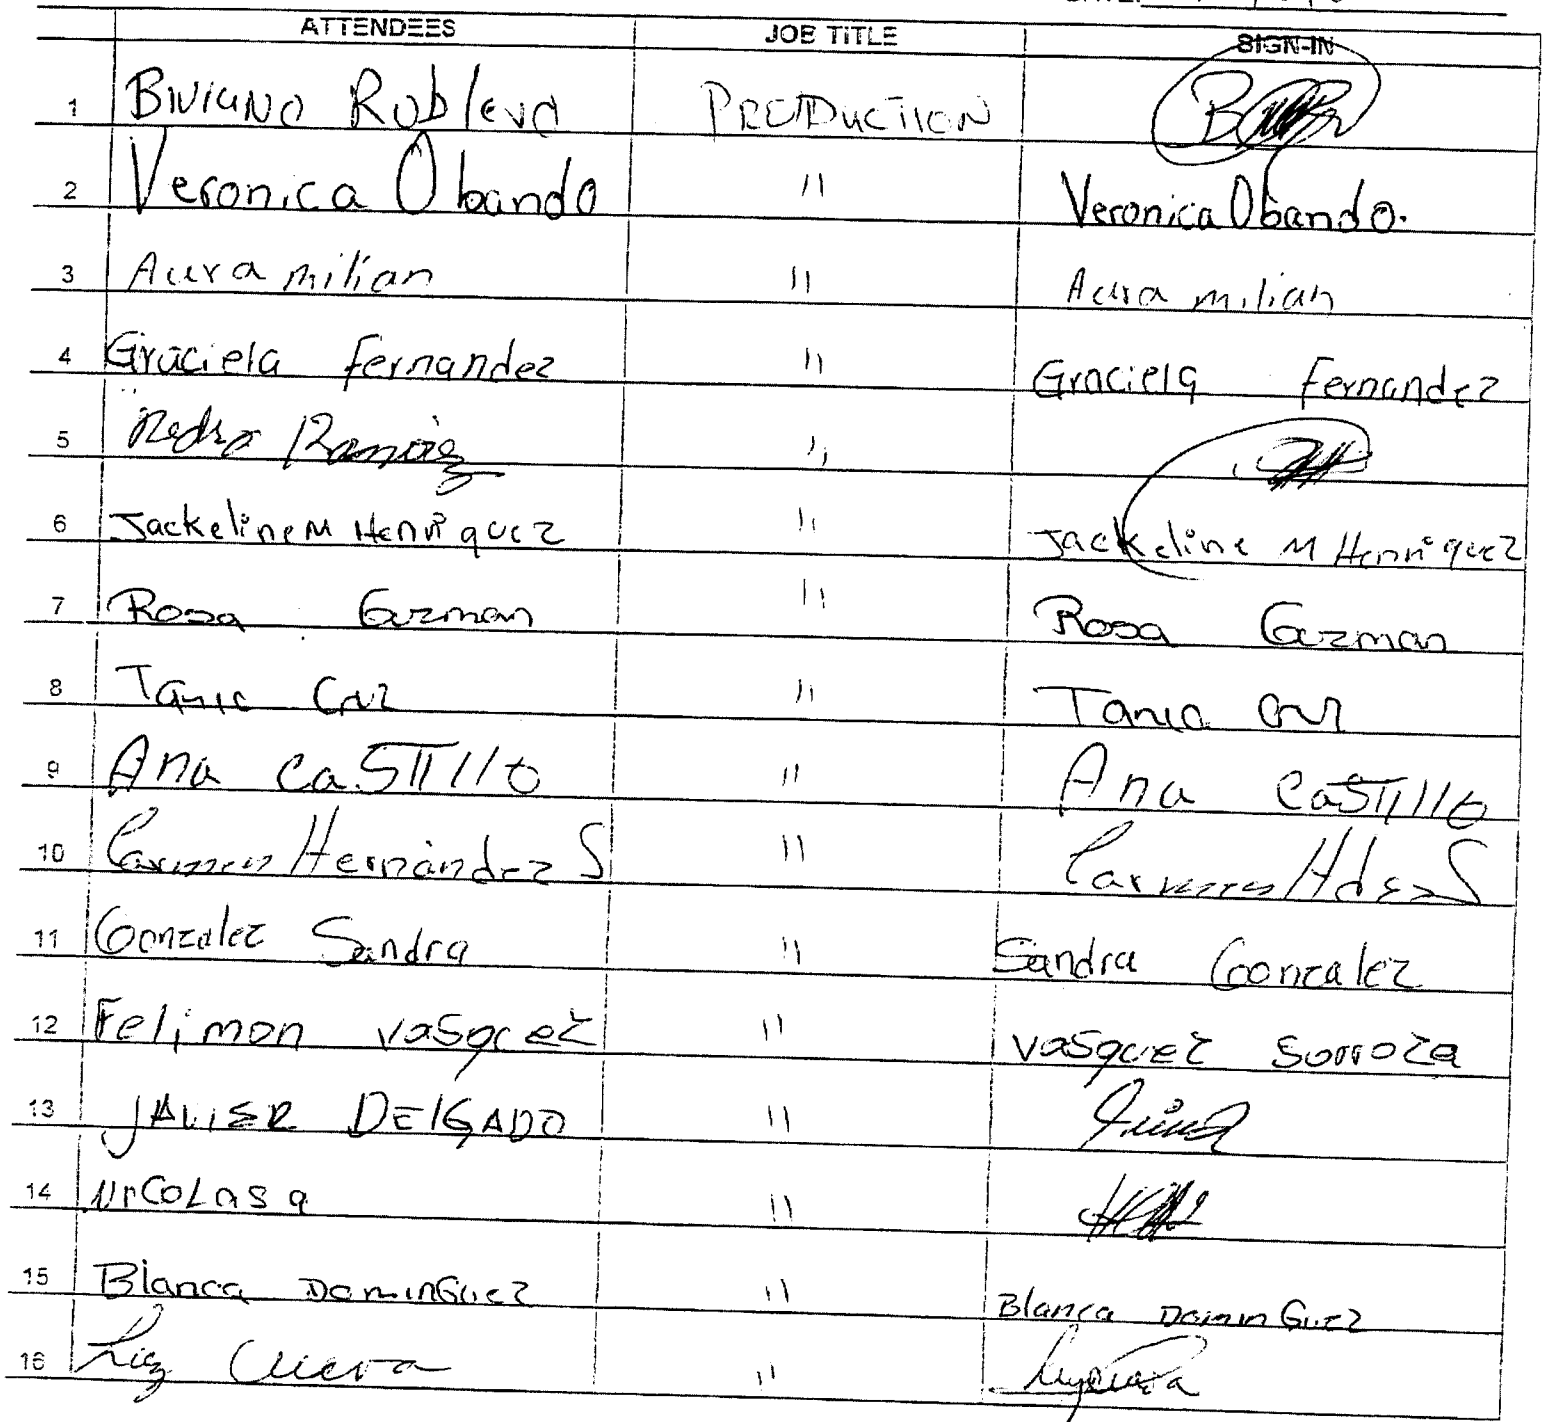 ATTENDEES JOB TITLE SIGN-IN
1 Biviano Robledo PRODUCTION
2 Veronica Obando " Veronica Obando.
3 Aura milian " Aura milian
4 Graciela Fernandez " Graciela Fernandez
5 Pedro Ramirez "
6 Jackeline M Henriquez " Jackeline M Henriquez
7 Rosa Guzman " Rosa Guzman
8 Tania Cruz " Tania Cruz
9 Ana caSTILLO " Ana CaSTILLO
10 Carmen Hernández S " Carmen Hdez S
11 Gonzalez Sandra " Sandra Gonzalez
12 Felimon vasquez " vasquez Sorroza
13 JAVIER DELGADO "
14 NICOLasa "
15 Blanca DominGuez " Blanca DominGuez
16 Luz Cueva "